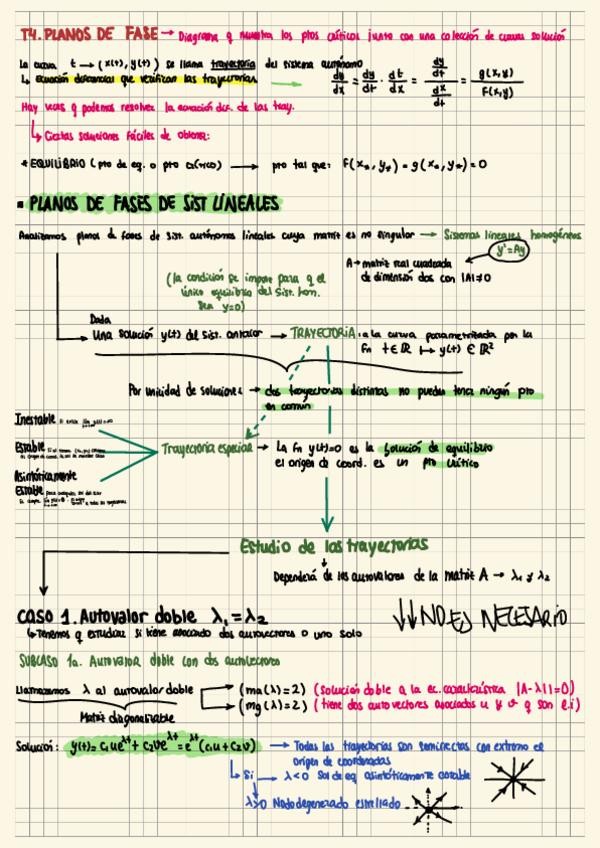 T4. PLANOS DE FASE → Diagrama q muestra los ptos críticos junto con una colección de curvas solución
La curva t → (x(t), y(t)) se llama trayectoria del sistema autónomo
↳ Ecuación diferencial que verifican las trayectorias → dy/dx = dy/dt · dt/dx = (dy/dt)/(dx/dt) = g(x,y)/F(x,y)
Hay veces q podemos resolver la ecuación dif. de las tray.
↳ Ciertas soluciones fáciles de obtener:
* EQUILIBRIO (pto de eq. o pto crítico) → pto tal que: F(x*, y*) = g(x*, y*) = 0
▪ PLANOS DE FASES DE SIST LINEALES
Analizamos planos de fases de sist. autónomos lineales cuya matriz es no singular → Sistemas lineales homogéneos
y' = Ay
A → matriz real cuadrada
de dimensión dos con |A| ≠ 0
(la condición se impone para q el
único equilibrio del sist. hom.
sea y=0)
Dada
Una solución y(t) del sist. anterior → TRAYECTORIA: a la curva parametrizada por la
Fn t ∈ ℝ ↦ y(t) ∈ ℝ²
Por unicidad de soluciones → dos trayectorias distintas no pueden tener ningún pto
en común
Inestable
Estable
Asintóticamente
Estable
Trayectoria especial → La Fn y(t)=0 es la solución de equilibrio
el origen de coord. es un pto crítico
Estudio de las trayectorias
Dependerá de los autovalores de la matriz A → λ₁ y λ₂
CASO 1. Autovalor doble λ₁ = λ₂
↓↓ NO ES NECESARIO
↳ Tenemos q estudiar si tiene asociado dos autovectores o uno solo
SUBCASO 1a. Autovalor doble con dos autovectores
Llamaremos λ al autovalor doble → (ma(λ)=2) (solución doble a la ec. característica |A-λI|=0)
→ (mg(λ)=2) (tiene dos autovectores asociados u y v q son l.i)
Matriz diagonalizable
Solución: y(t)= c₁ue^λt + c₂ve^λt = e^λt(c₁u + c₂v) → Todas las trayectorias son semirrectas con extremo el
origen de coordenadas
↳ Si → λ<0 Sol de eq asintóticamente estable
λ>0 Nodo degenerado estrellado